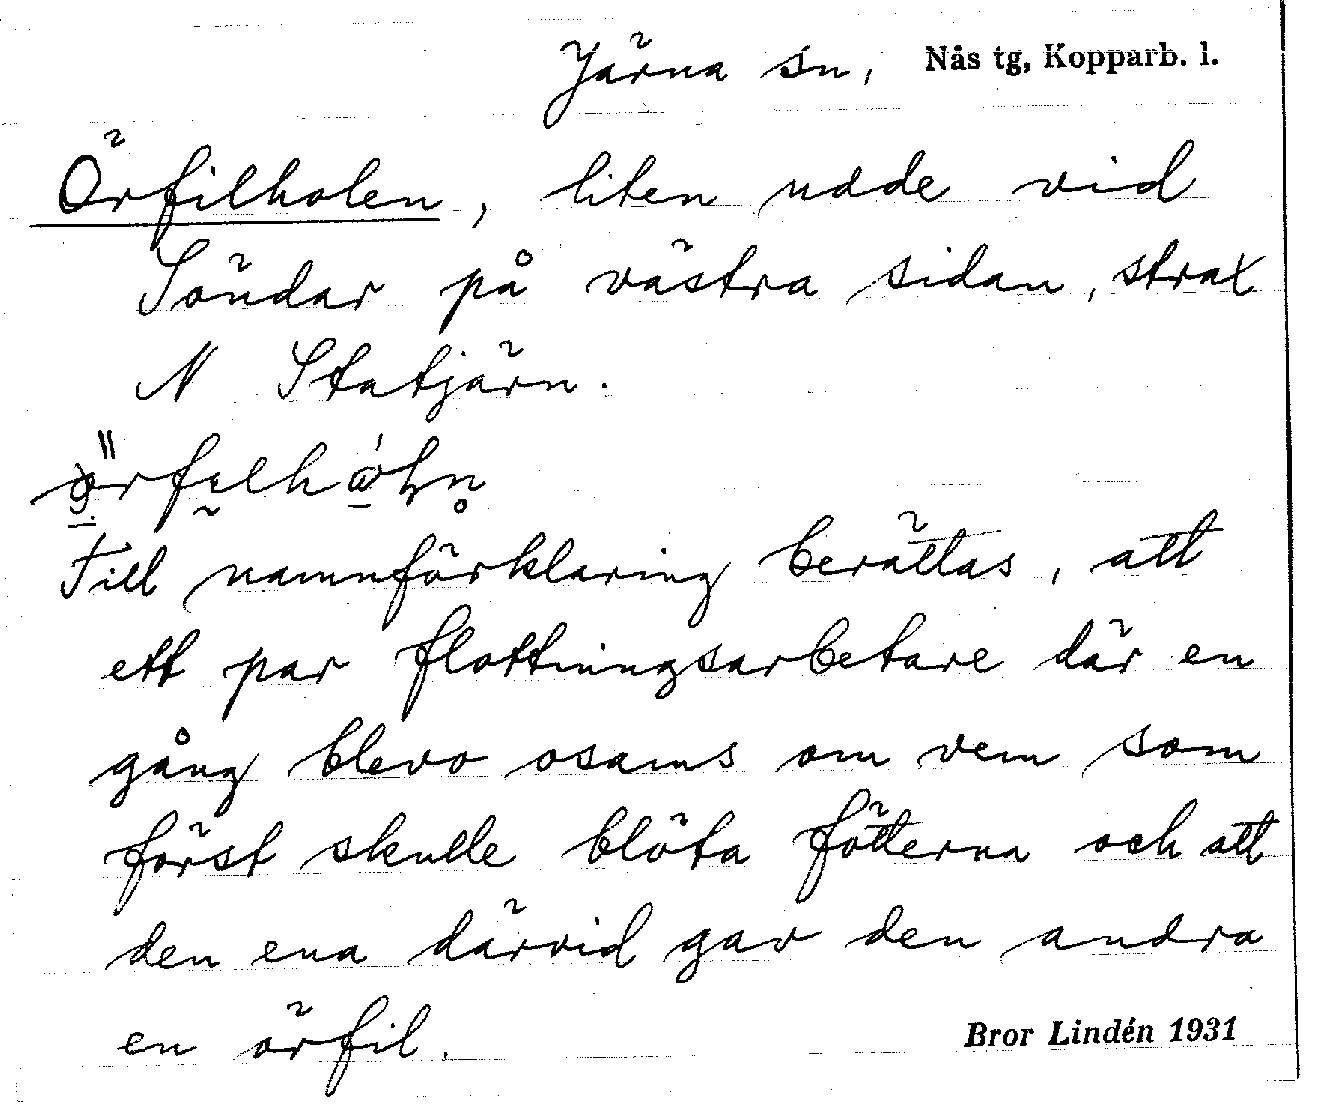 Järna sn, Nås tg, Kopparb. l.
Örfilholen, liten udde vid
Söndar på västra sidan, strax
N Statjärn.
Till namnförklaring berättas, att
ett par flottningsarbetare där en
gång blevo osams om vem som
först skulle blöta fötterna och att
den ena därvid gav den andra
en örfil.
Bror Lindén 1931